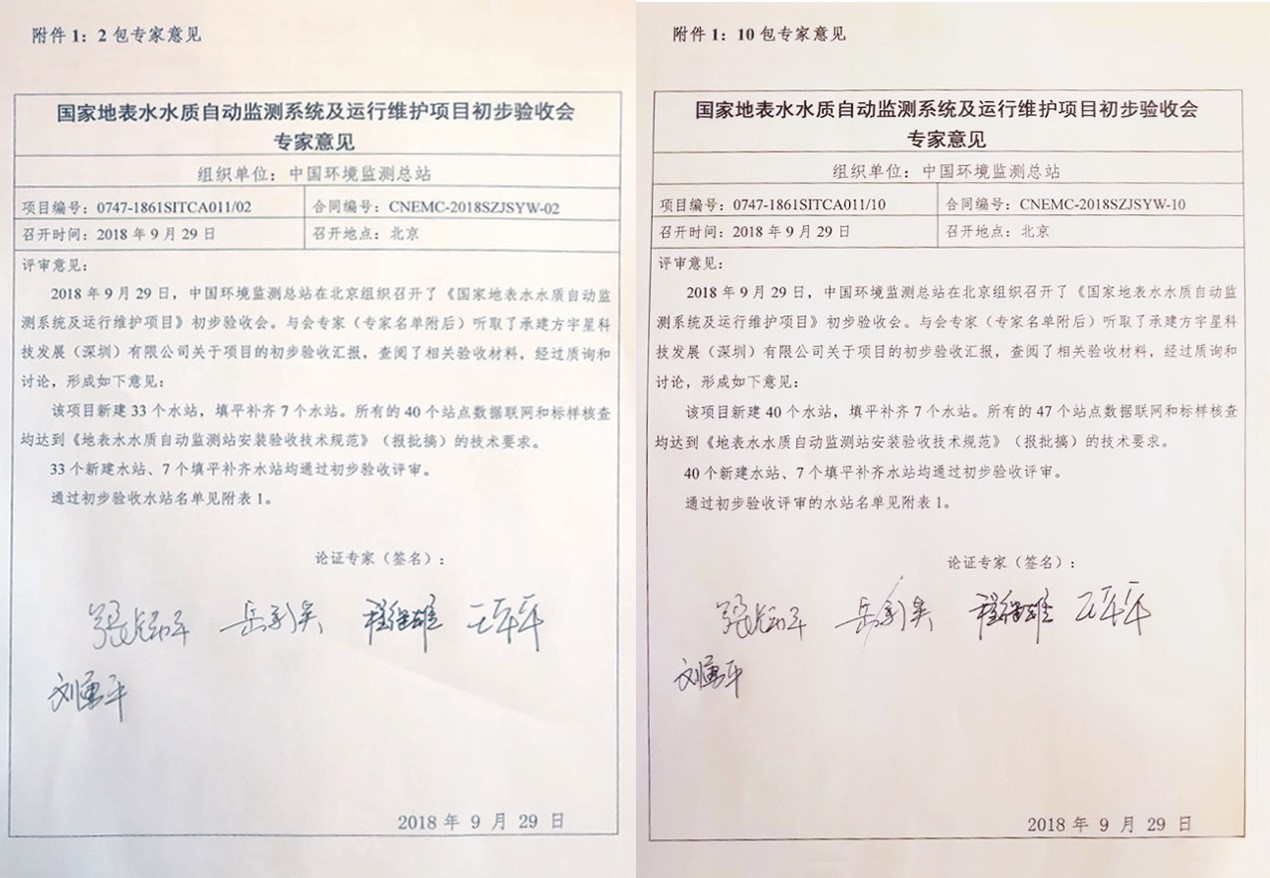 附件 1：2 包专家意见
国家地表水水质自动监测系统及运行维护项目初步验收会
专家意见
组织单位：中国环境监测总站
项目编号：0747-1861SITCA011/02
合同编号：CNEMC-2018SZJSYW-02
召开时间：2018 年 9 月 29 日
召开地点：北京
评审意见：
2018 年 9 月 29 日，中国环境监测总站在北京组织召开了《国家地表水水质自动监
测系统及运行维护项目》初步验收会。与会专家（专家名单附后）听取了承建方宇星科
技发展（深圳）有限公司关于项目的初步验收汇报，查阅了相关验收材料，经过质询和
讨论，形成如下意见：
该项目新建 33 个水站，填平补齐 7 个水站。所有的 40 个站点数据联网和标样核查
均达到《地表水水质自动监测站安装验收技术规范》（报批搞）的技术要求。
33 个新建水站、7 个填平补齐水站均通过初步验收评审。
通过初步验收水站名单见附表 1。
论证专家（签名）：
岳 程继雄 王
刘勇平
2018 年 9 月 29 日
附件 1：10 包专家意见
国家地表水水质自动监测系统及运行维护项目初步验收会
专家意见
组织单位：中国环境监测总站
项目编号：0747-1861SITCA011/10
合同编号：CNEMC-2018SZJSYW-10
召开时间：2018 年 9 月 29 日
召开地点：北京
评审意见：
2018 年 9 月 29 日，中国环境监测总站在北京组织召开了《国家地表水水质自动监
测系统及运行维护项目》初步验收会。与会专家（专家名单附后）听取了承建方宇星科
技发展（深圳）有限公司关于项目的初步验收汇报，查阅了相关验收材料，经过质询和
讨论，形成如下意见：
该项目新建 40 个水站，填平补齐 7 个水站。所有的 47 个站点数据联网和标样核查
均达到《地表水水质自动监测站安装验收技术规范》（报批搞）的技术要求。
40 个新建水站、7 个填平补齐水站均通过初步验收评审。
通过初步验收评审的水站名单见附表 1。
论证专家（签名）：
岳 程继雄 王
刘勇平
2018 年 9 月 29 日